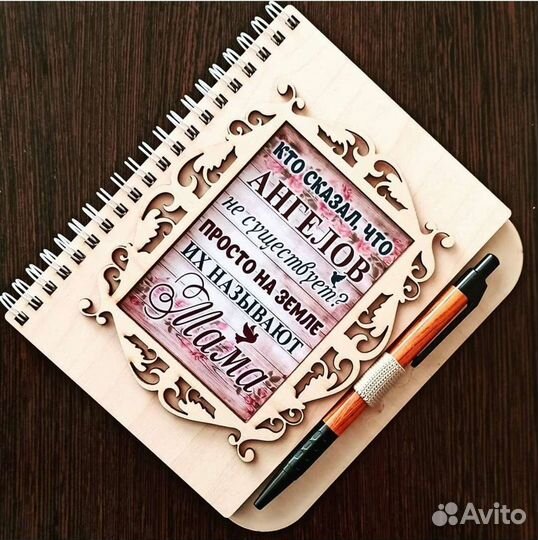 КТО СКАЗАЛ, ЧТО
АНГЕЛОВ
не существует?
ПРОСТО НА ЗЕМЛЕ
ИХ НАЗЫВАЮТ
Мама
Avito